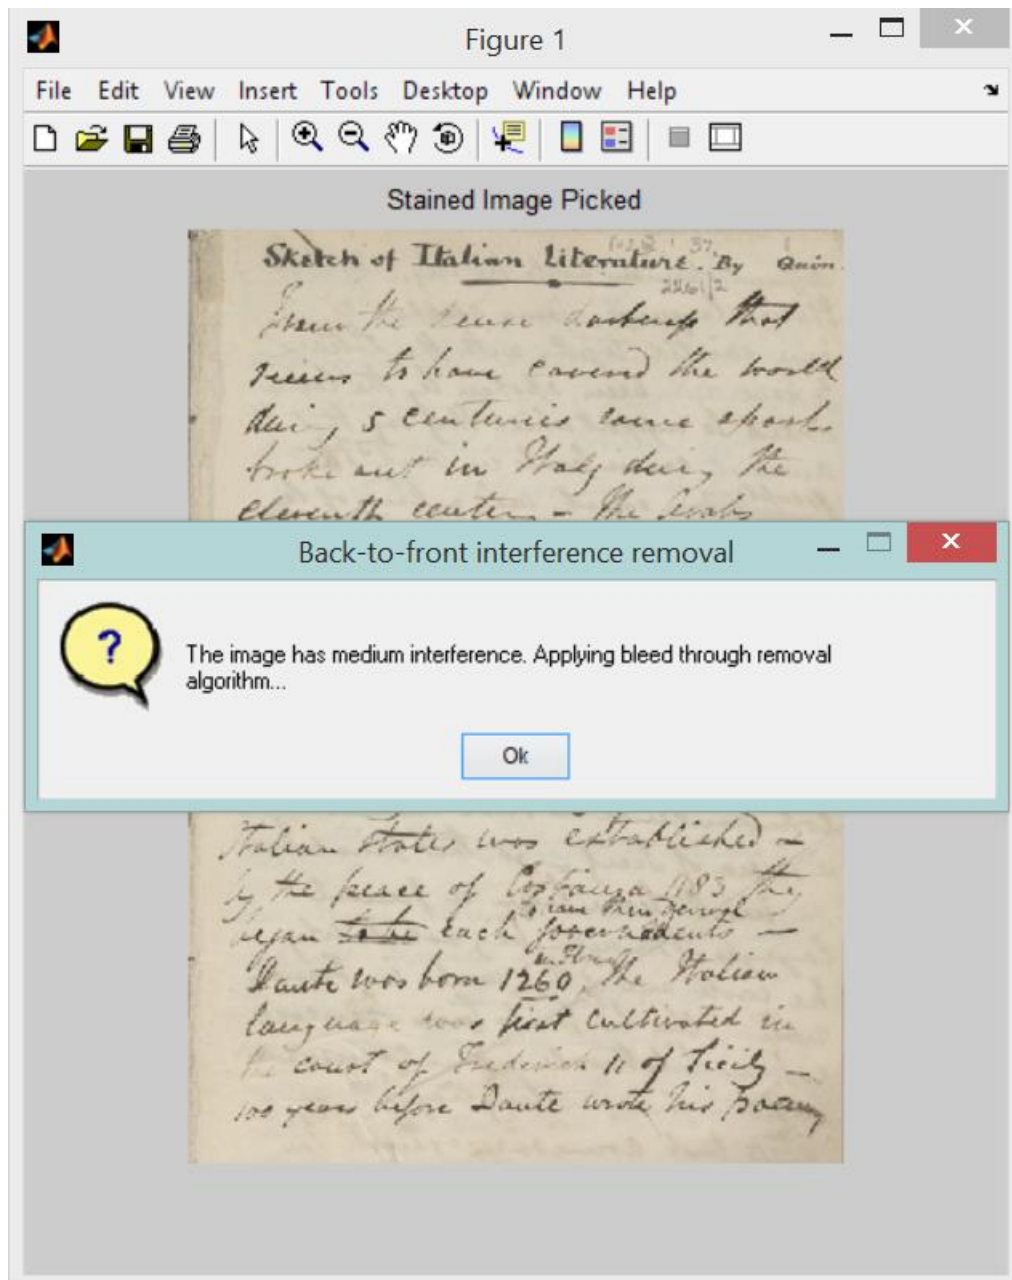 Figure 1
File Edit View Insert Tools Desktop Window Help
Stained Image Picked
Sketch of Italian Literature. By Quin.
2261/2
From the dense darkness that
seems to have covered the world
during 5 centuries some sparks
broke out in Italy during the
eleventh century - The Arabs
Back-to-front interference removal
?
The image has medium interference. Applying bleed through removal
algorithm...
Ok
Italian States was established -
by the peace of Constanza 1183 they
began to be each
Dante was born 1260, The Italian
language was first cultivated in
the court of Frederick 11 of Sicily -
100 years before Dante wrote his poem